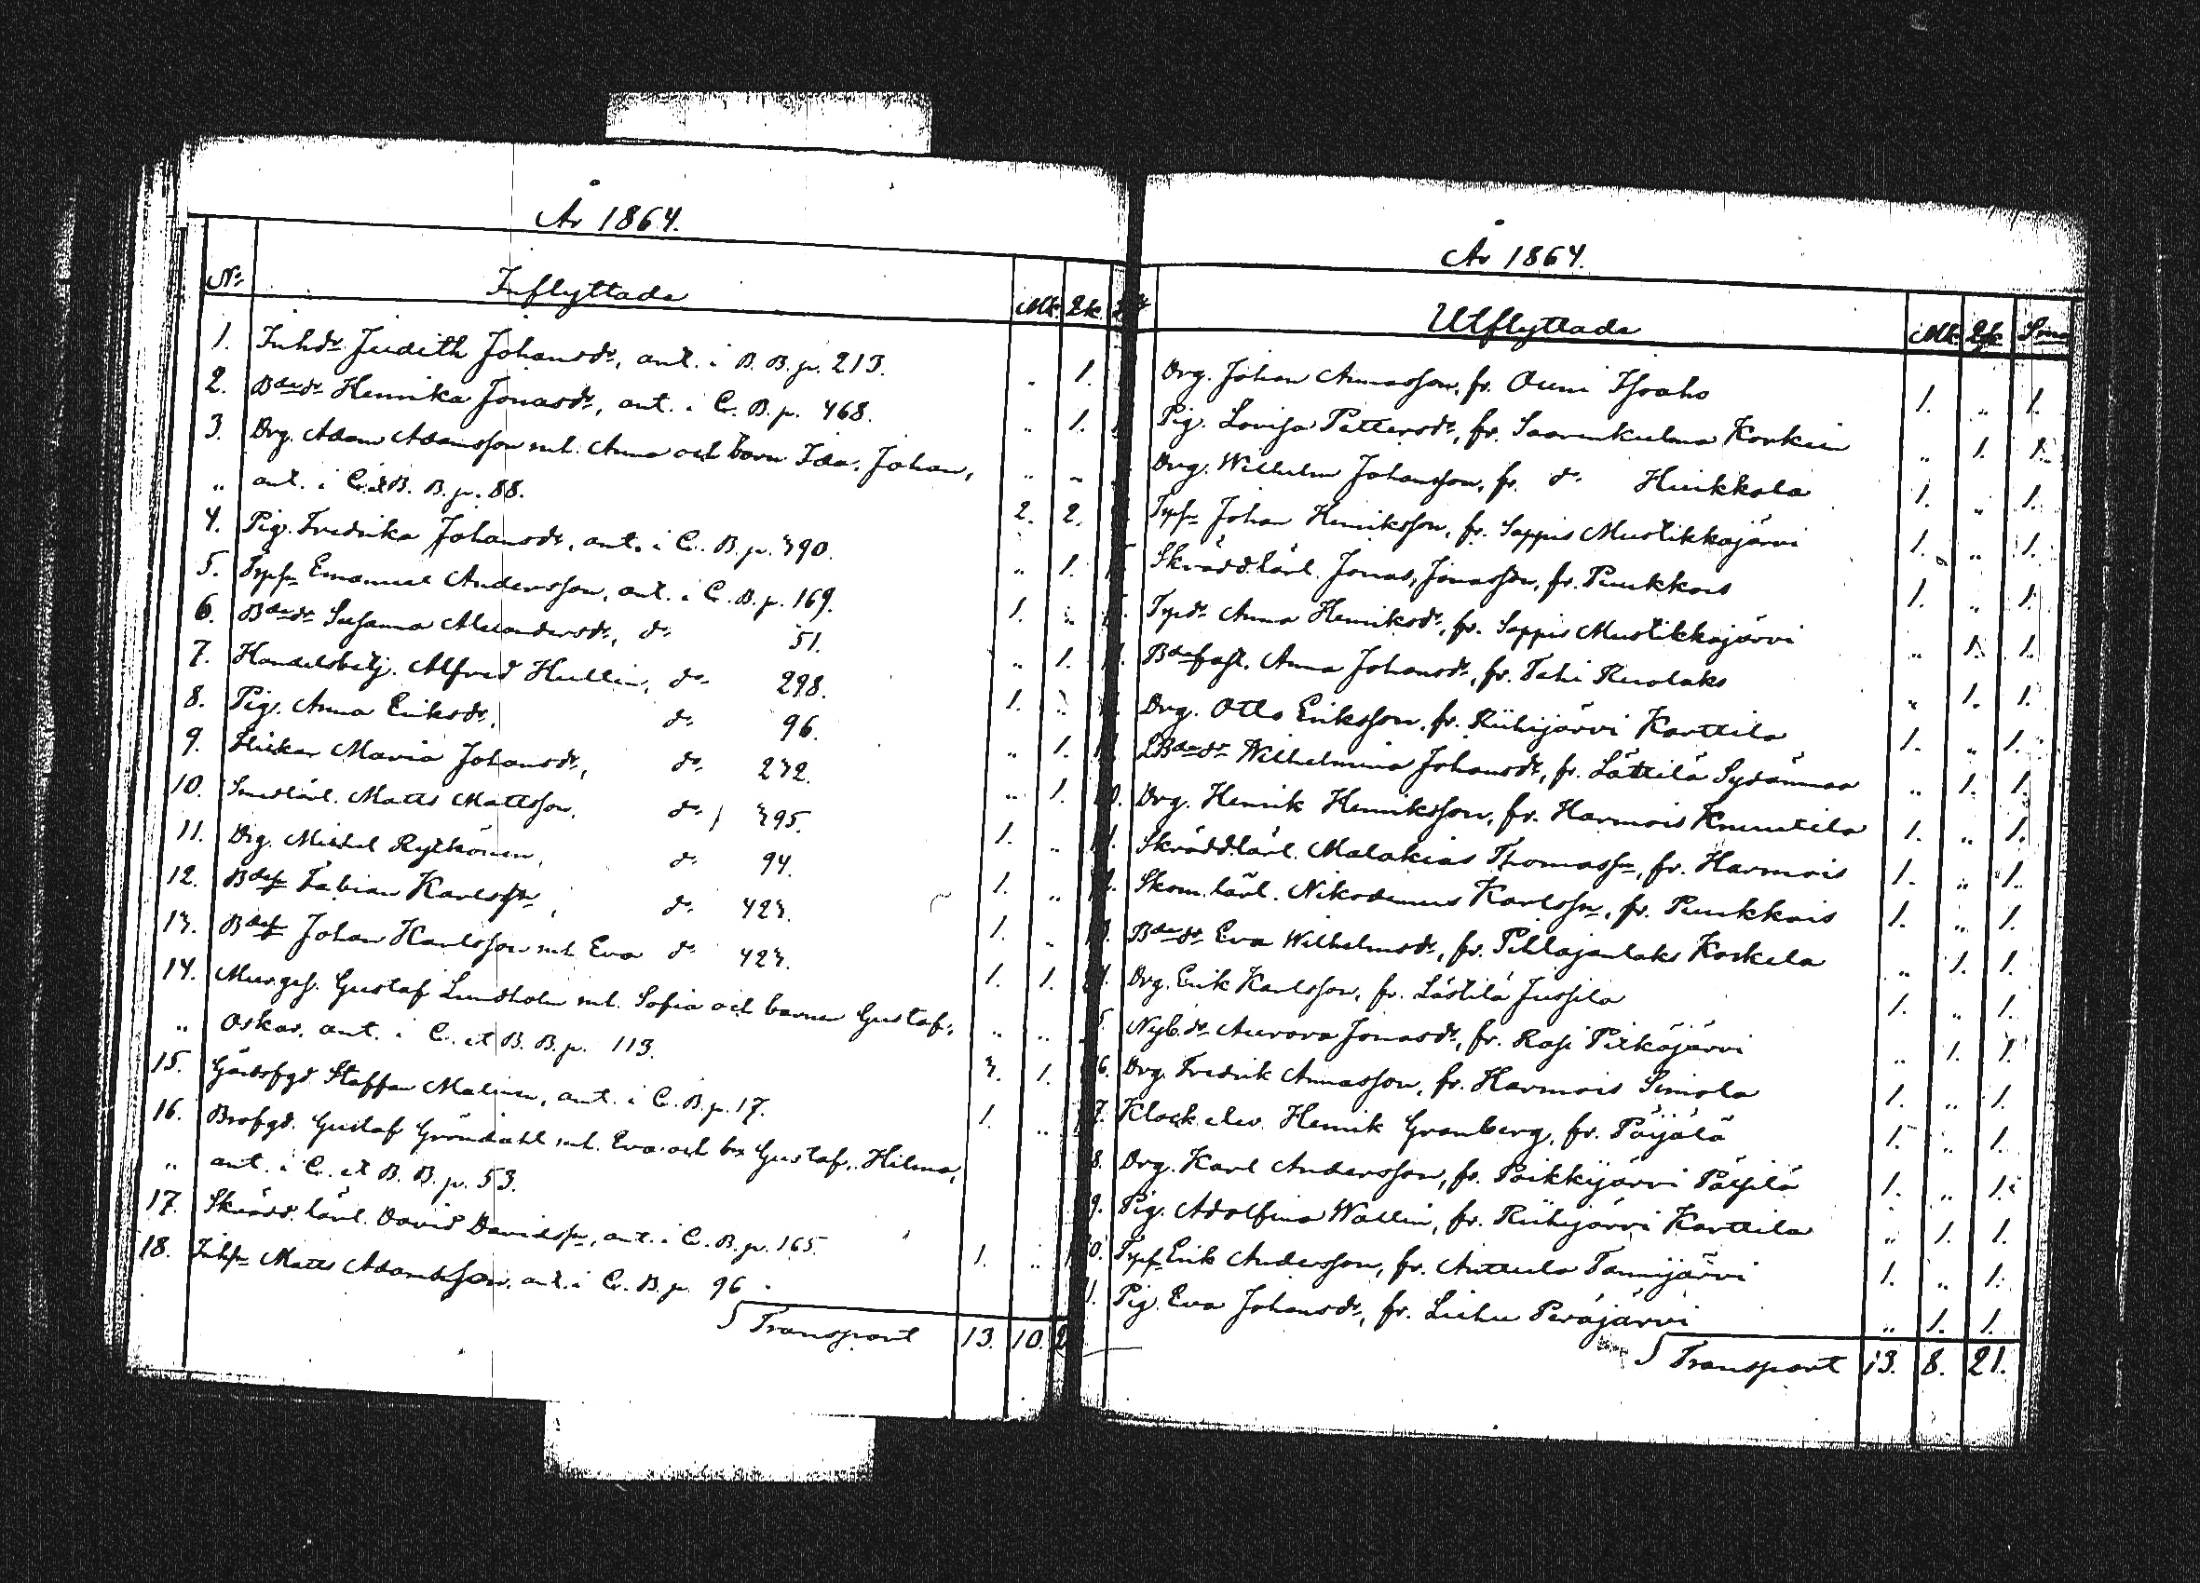 År 1864.
No Inflyttade Mk. Qk.
1. Inhdr Judith Johansdr, ant. i B. B. p. 213. „ 1.
2. Bdedr Henrika Jonasdr, ant. i C. B. p. 468. „ 1.
3. Drg. Adam Adamsson mh. Anna och barn Ida, Johan, „ „
„ ant. i C. et B. B. p. 88. 2. 2.
4. Pig. Fredrika Johansdr, ant. i C. B. p. 390. „ 1.
5. Trpsn Emanuel Andersson, ant. i C. B. p. 169. 1. „
6. Bdedr Susanna Alexandersdr, do 51. „ 1.
7. Handelsbetj. Alfred Hullin, do 298. 1. „
8. Pig. Anna Eriksdr, do 96. „ 1.
9. Flickan Maria Johansdr, do 272. „ 1.
10. Smedlärl. Matts Mattsson, do 395. 1. „
11. Drg. Michel Rytkönen, do 94. 1. „
12. Bdesn Fabian Karlssn, do 423. 1. „
13. Bdesn Johan Karlsson mh. Eva do 423. 1. 1.
14. Murges. Gustaf Lindholm mh. Sofia och barnen Gustaf, „ „
„ Oskar, ant. i C. et B. B. p. 113. 3. 1.
15. Gårdsfgd Staffan Malinen, ant. i C. B. p. 17. 1. „
16. Brofgd. Gustaf Gröndahl mh. Eva och bn Gustaf, Hilma,
„ ant. i C. et B. B. p. 53.
17. Skrädd. lärl. David Davidssn, ant. i C. B. p. 165. 1. „
18. Inhsn Matts Adamsson, ant. i C. B. p. 96
Transport 13. 10. 2
År 1864.
Utflyttade Mk. Qk. Sma
Drg. Johan Annasson, fr. Ouni Isoaho 1. „ 1.
Pig. Lovisa Pettersdr, fr. Saarenkulma Korkein „ 1. 1.
Drg. Wilhelm Johansson, fr. do Huikkala 1. „ 1.
Trpsn Johan Henriksson, fr. Seppis Mustikkajärvi 1. „ 1.
Skräddlärl. Jonas Jonasson, fr. Puukkois 1. „ 1.
Trpdr Anna Henriksdr, fr. Seppis Mustikkajärvi „ 1. 1.
Bdefast. Anna Johansdr, fr. Tehi Ruolaks „ 1. 1.
Drg. Otto Eriksson, fr. Riihijärvi Karttila 1. „ 1.
Bdedr Wilhelmina Johansdr, fr. Lättilä Sydänmaa „ 1. 1.
0. Drg. Henrik Henriksson, fr. Harmois Knuutila 1. „ 1.
1. Skräddlärl. Malakias Thomassn, fr. Harmois 1. „ 1.
2. Skom. lärl. Nikodemus Karlssn, fr. Puukkois 1. „ 1.
3. Bdedr Eva Wilhelmsdr, fr. Pihlajanlaks Koskela „ 1. 1.
4. Drg. Erik Karlsson, fr. Lästilä Jussila 1. „ 1.
5. Nyb.dr Aurora Jonasdr, fr. Rasi Pitkäjärvi „ 1. 1.
6. Drg. Fredrik Annasson, fr. Harmois Simola 1. „ 1.
7. Klockelev. Henrik Granberg, fr. Päijälä 1. „ 1.
8. Drg. Karl Andersson, fr. Poikkijärvi Päijilä 1. „ 1.
9. Pig. Adolfina Wallin, fr. Riihijärvi Karttila „ 1. 1.
0. Trpsn Erik Andersson, fr. Anttula Tammijärvi 1. „ 1.
1. Pig. Eva Johansdr, fr. Liehu Peräjärvi „ 1. 1.
Transport 13. 8. 21.